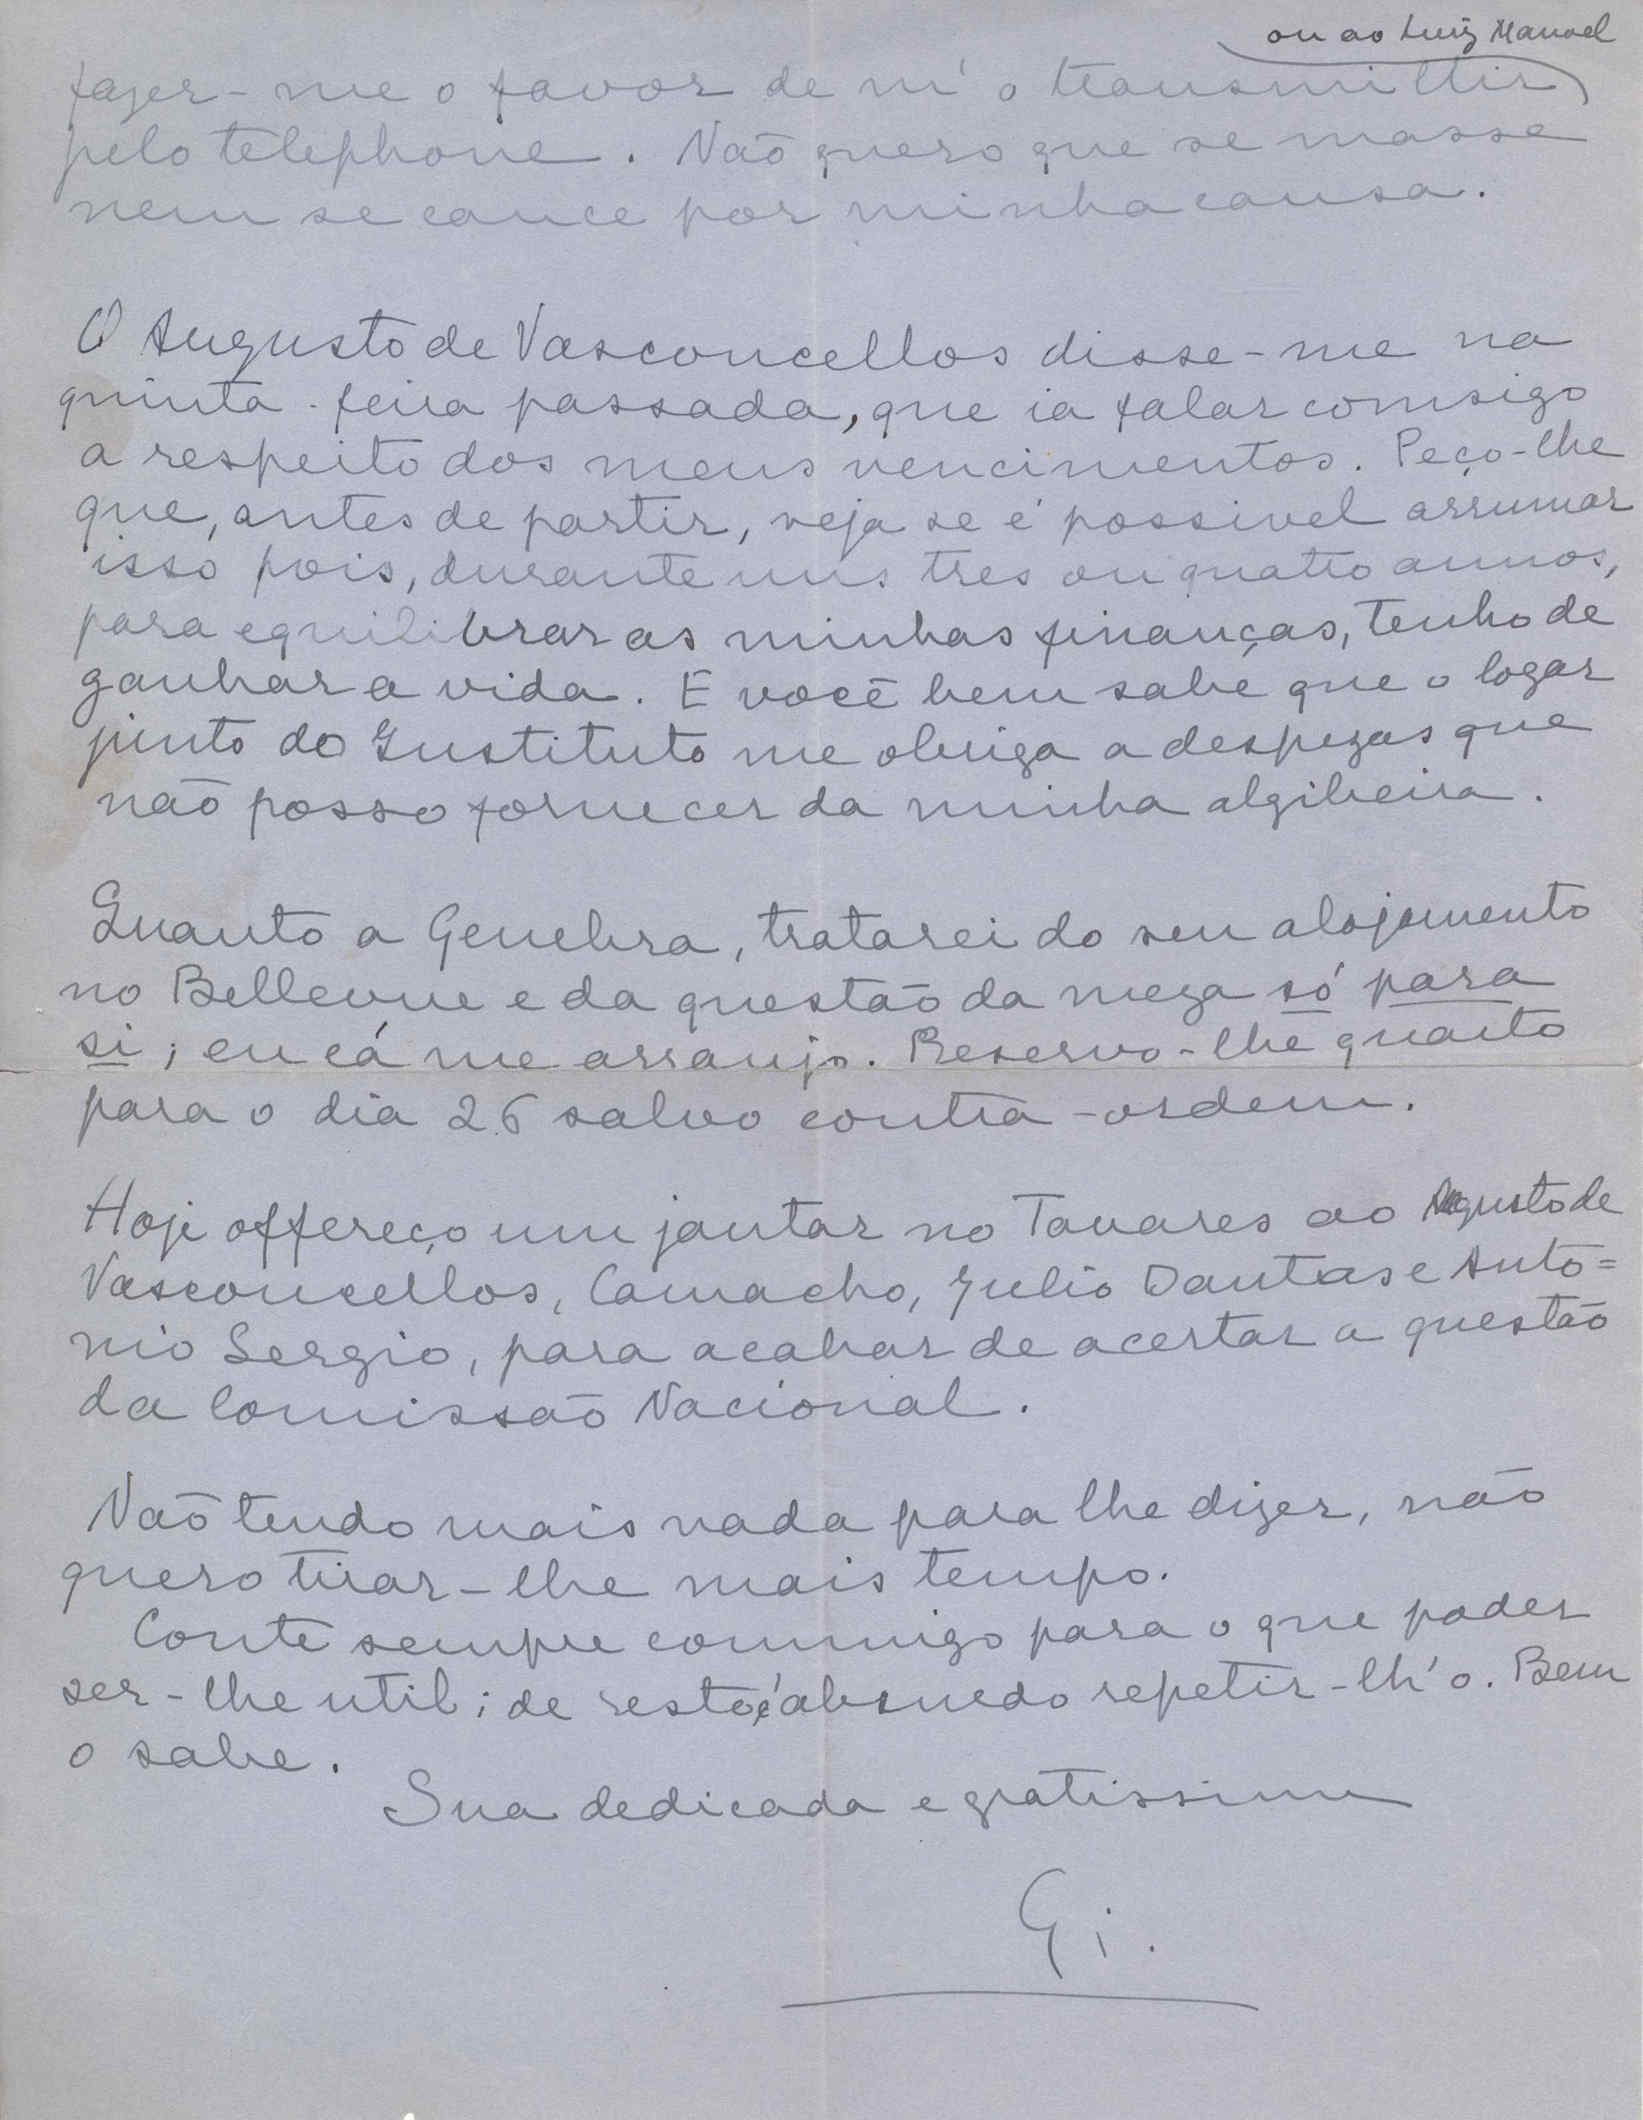 ou ao Luiz Manoel
fazer-me o favor de m'o transmittir
pelo telephone. Não quero que se masse
nem se cance por minha causa.
O Augusto de Vasconcellos disse-me na
quinta-feira passada, que ia falar comsigo
a respeito dos meus vencimentos. Peço-lhe
que, antes de partir, veja se é possivel arrumar
isso pois, durante uns tres ou quatro annos,
para equilibrar as minhas finanças, tenho de
ganhar a vida. E você bem sabe que o logar
junto do Instituto me obriga a despezas que
não posso fornecer da minha algibeira.
Quanto a Genebra, tratarei do seu alojamento
no Bellevue e da questão da meza só para
si; eu cá me arranjo. Reservo-lhe quarto
para o dia 26 salvo contra-ordem.
Hoje offereço um jantar no Tavares ao Augusto de
Vasconcellos, Camacho, Julio Dantas e Antó=
nio Sergio, para acabar de acertar a questão
da Comissão Nacional.
Não tendo mais nada para lhe dizer, não
quero tirar-lhe mais tempo.
Conte sempre commigo para o que poder
ser-lhe util; de resto é absurdo repetir-lh'o. Bem
o sabe.
Sua dedicada e gratissima
Gi.